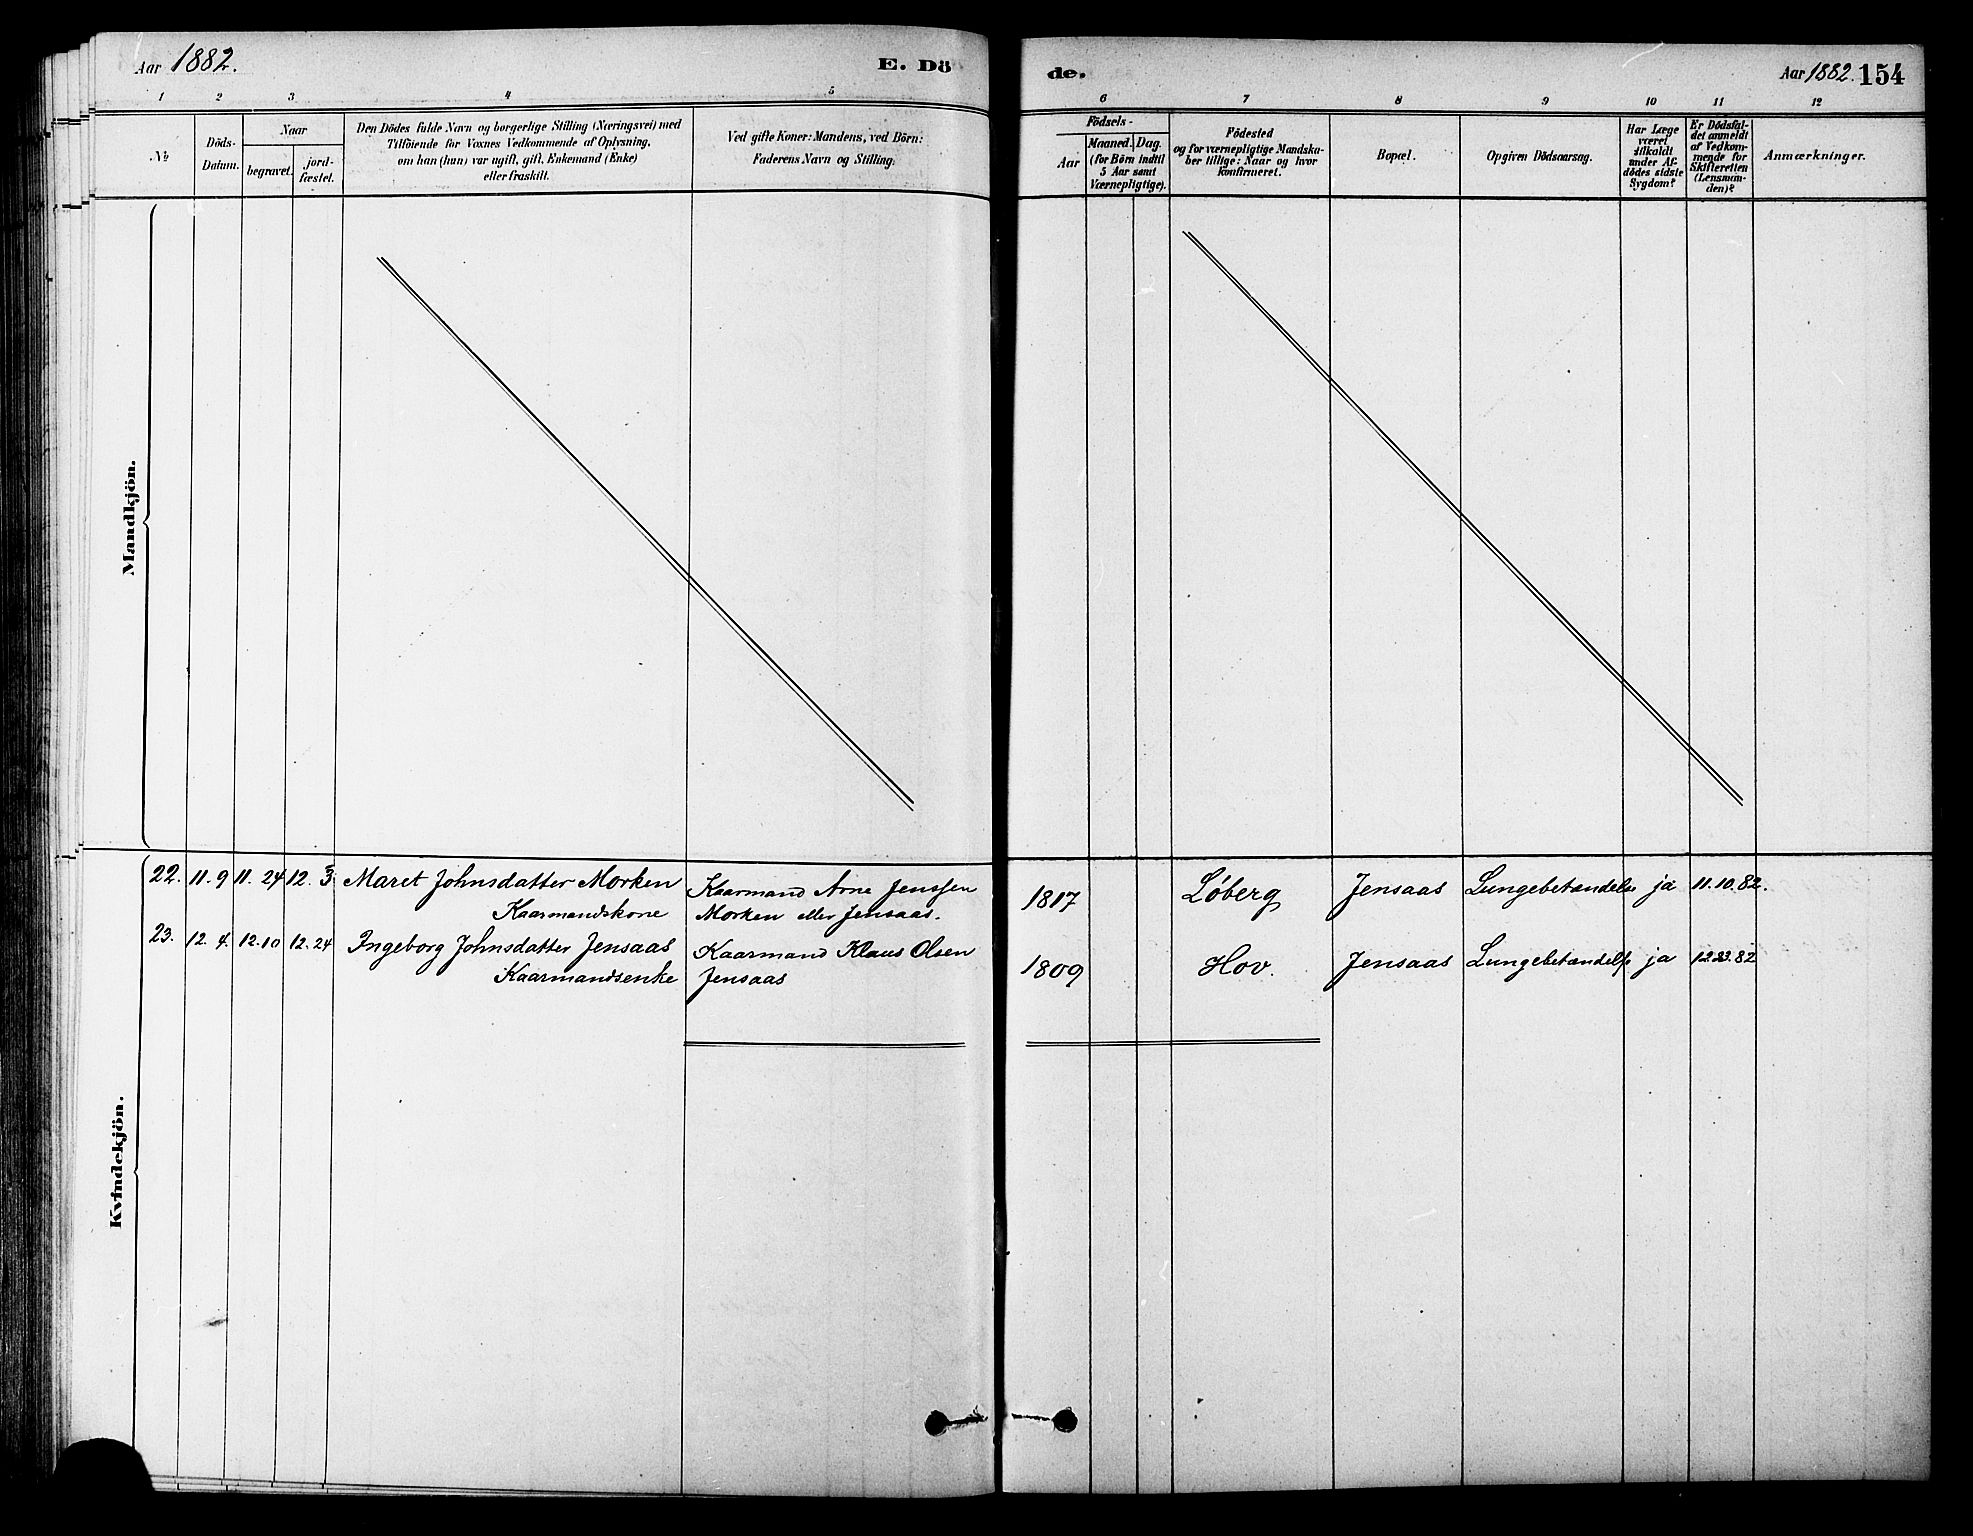 Aar 1882.
E. Dö
de.
Aar 1882. 154
1 2 3 4 5
6 7 8 9 10 11 12
No
Döds-
Datum.
Naar
begravet.
jord-
fæstet.
Den Dödes fulde Navn og borgerlige Stilling (Næringsvei) med
Tilföiende for Voxnes Vedkommende af Oplysning,
om han (hun) var ugift, gift, Enkemand (Enke)
eller fraskilt.
Ved gifte Koner: Mandens, ved Börn:
Faderens Navn og Stilling.
Födsels-
Aar
Maaned. Dag.
(for Börn indtil
5 Aar samt
Værnepligtige).
Födested
og for værnepligtige Mandska-
ber tillige: Naar og hvor
konfirmeret.
Bopæl.
Opgiven Dödsaarsag.
Har Læge
været
tilkaldt
under Af-
dödes sidste
Sygdom?
Er Dödsfal-
det anmeldt
af Vedkom-
mende for
Skifteretten
(Lensman-
den)?
Anmærkninger.
Mandkjön.
Kvindekjön.
22. 11. 9 11. 24 12. 3 Maret Johnsdatter Morken Kaarmand Arne Jenssen 1817 Löberg Jensaas Lungebetændelse ja 11.10.82.
Kaarmandskone Morken eller Jensaas.
23. 12. 4. 12. 10 12. 24 Ingeborg Johnsdatter Jensaas Kaarmand Klaus Olsen 1809 Hov. Jensaas Lungebetændelse ja
Kaarmandsenke Jensaas